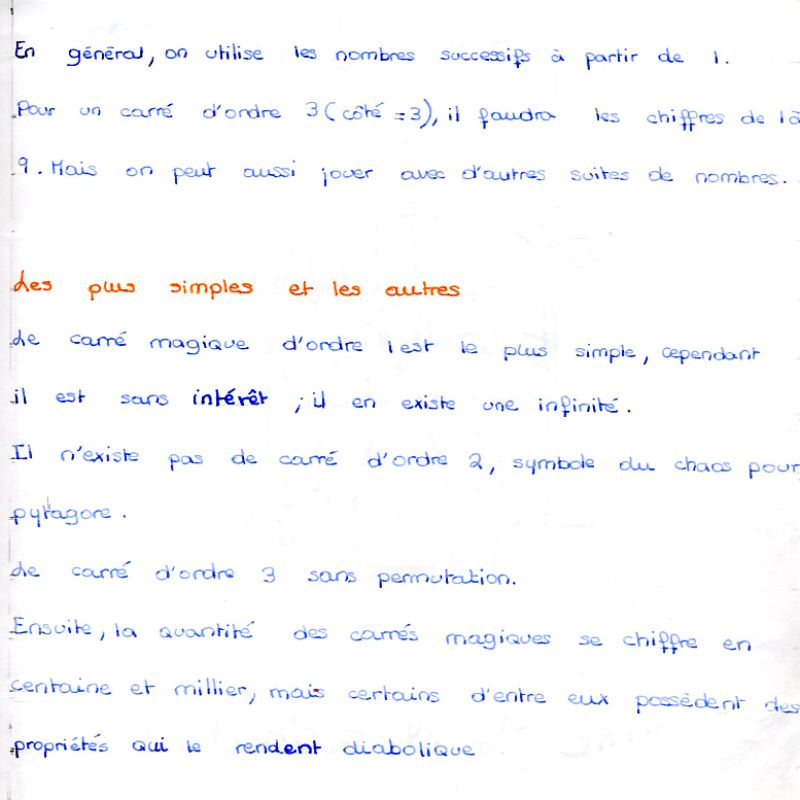 En général, on utilise les nombres successifs à partir de 1.
Pour un carré d'ordre 3 (côté = 3), il faudra les chiffres de 1 à
9. Mais on peut aussi jouer avec d'autres suites de nombres.
Les plus simples et les autres
Le carré magique d'ordre 1 est le plus simple, cependant
il est sans intérêt ; il en existe une infinité.
Il n'existe pas de carré d'ordre 2, symbole du chaos pour
pytagore.
Le carré d'ordre 3 sans permutation.
Ensuite, la quantité des carrés magiques se chiffre en
centaine et millier, mais certains d'entre eux possèdent des
propriétés qui le rendent diabolique